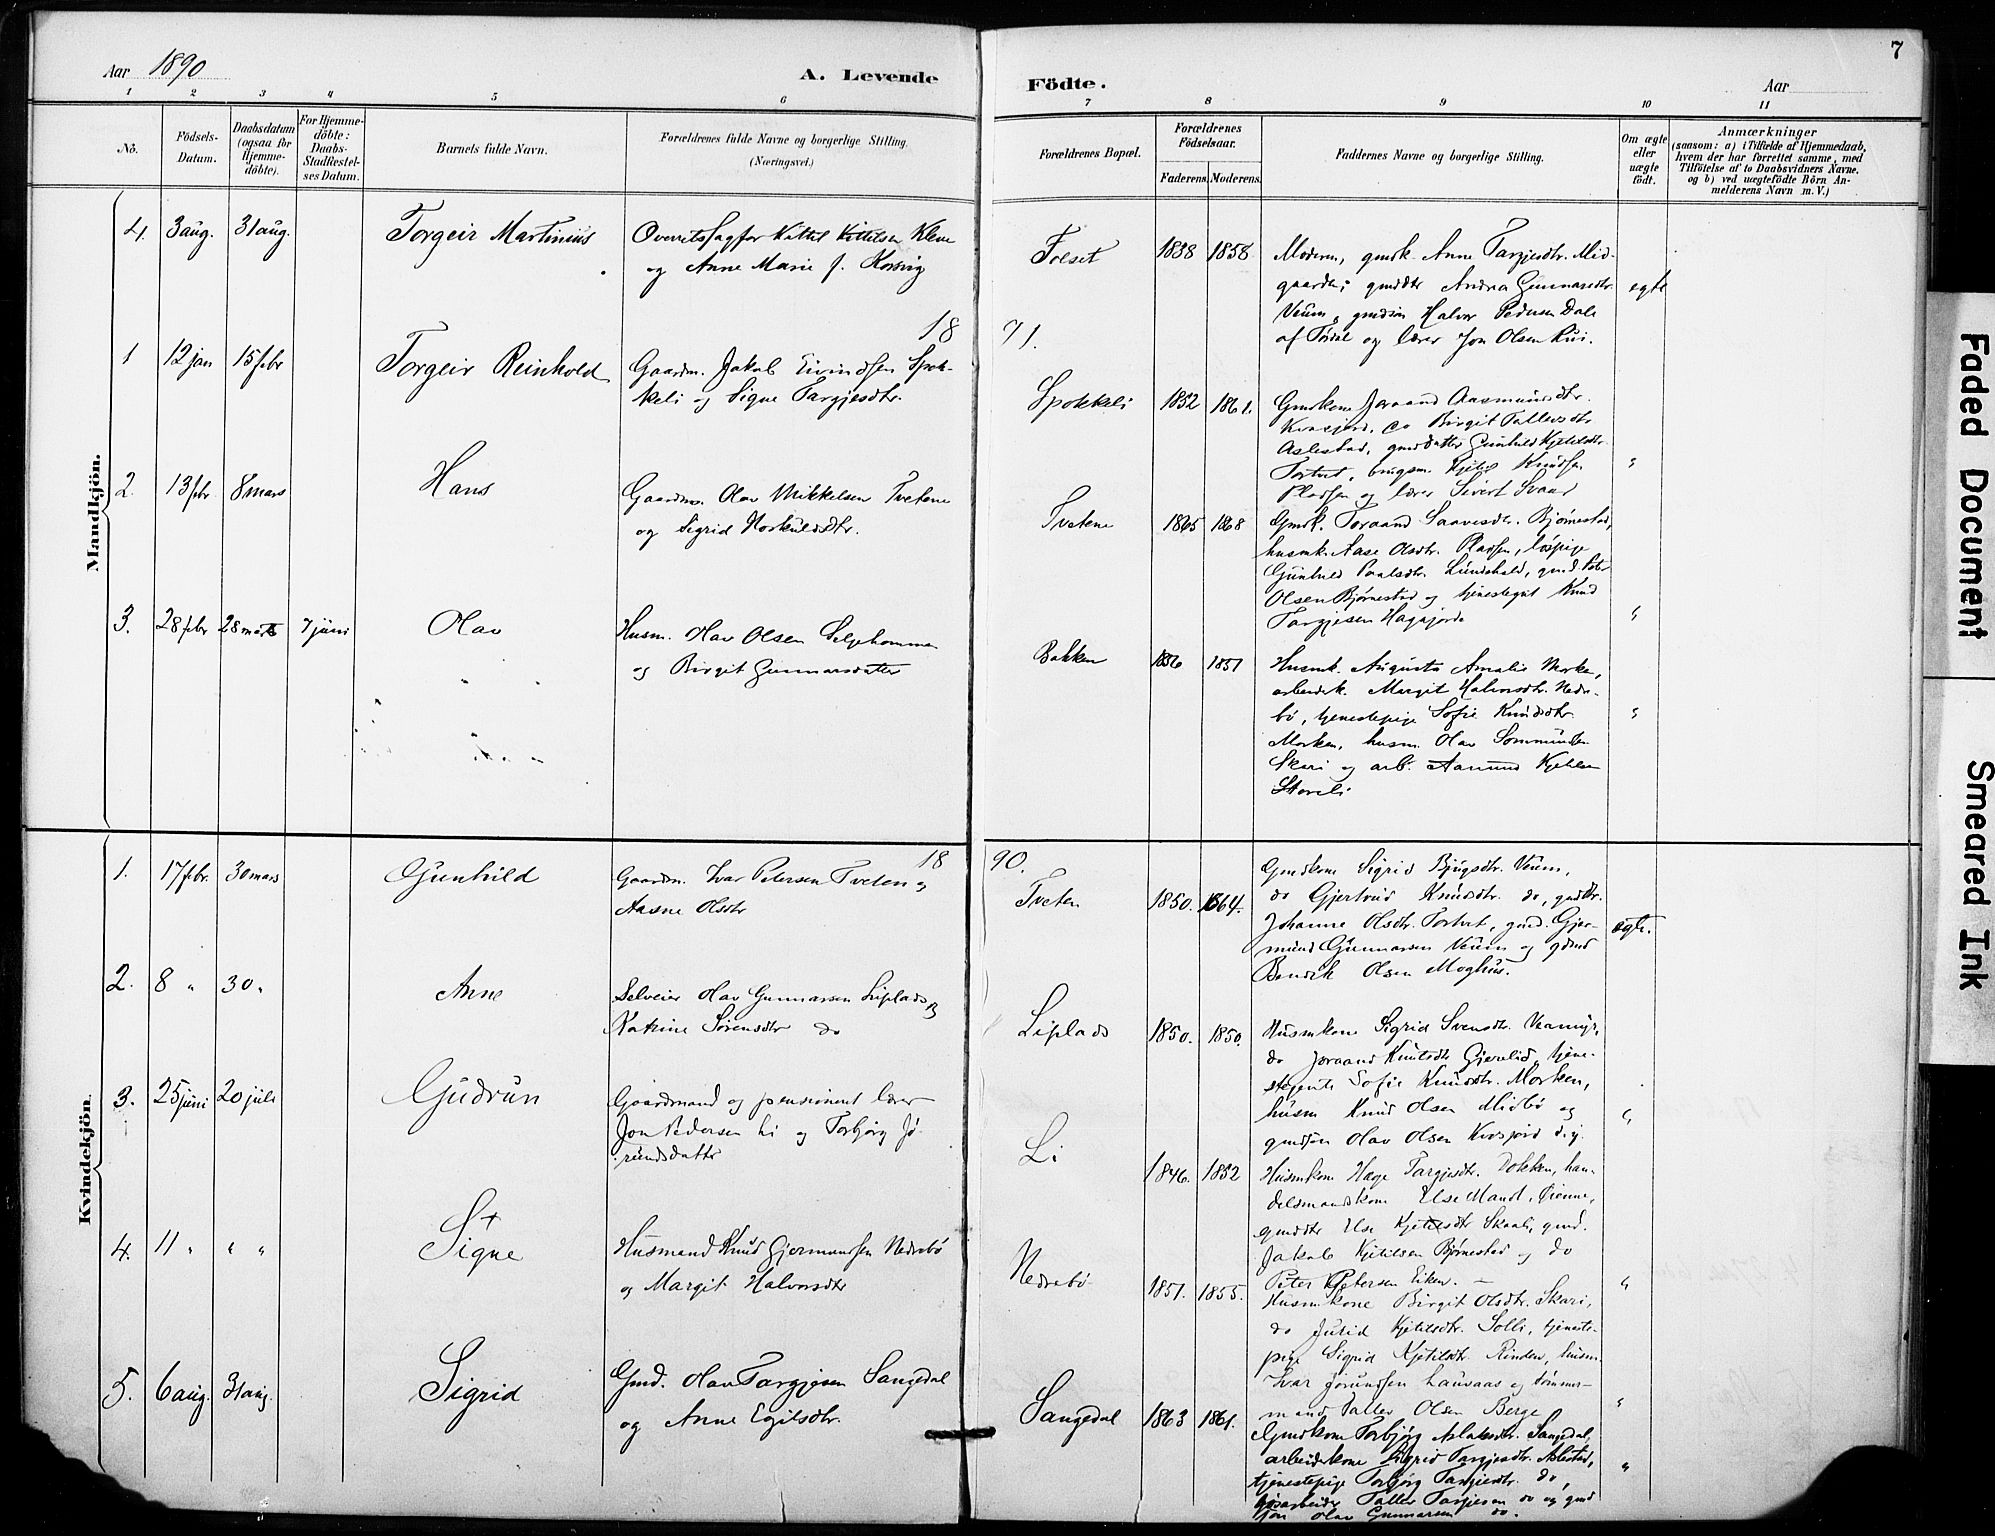 7
Aar 1890
A. Levende
Födte.
Aar
1 2 3 4 5 6 7 8 9 10 11
Nö.
Födsels-
Datum.
Daabsdatum
(ogsaa for
Hjemme-
döbte).
For Hjemme-
döbte:
Daabs-
Stadfæstel-
ses Datum.
Barnets fulde Navn.
Forældrenes fulde Navne og borgerlige Stilling.
(Næringsvei.)
Forældrenes Bopæl.
Forældrenes
Födselsaar.
Faderens. Moderens.
Faddernes Navne og borgerlige Stilling.
Om ægte
eller
uægte
födt.
Anmærkninger
(saasom: a) i Tilfælde af Hjemmedaab,
hvem der har forrettet samme, med
Tilföielse af to Daabsvidners Navne.
og b) ved uægtefödte Börn An-
melderens Navn m. V.)
Mandkjön.
4. 3 aug. 31 aug. Torgeir Martinius
Kittil Kittilsen Kleve
og Anne Marie f.
Folset 1838 1858
Moderen, gmdk. Anne Targjesdtr. Mid-
gaarden, gmddtr Andrea Gunnarsdtr.
Veum, gmdsøn Halvor Pedersen Dale
af og lærer Jon Olsen
egte
1891.
1 12 jan 15 febr Torgeir Reinhold
Gaardm. Jakob Eivindsen Spok-
keli og Signe Targjesdtr.
Spokkeli 1832 1861.
Gmdkone Joraand Aasmundsdtr.
do Birgit Tallevsdtr
Aslestad, gmddatter Gunhild Kjetilsdtr.
Tortvet, brugsm. Kjetil Knudsen
Pladsen og lærer Sivert Svaad
"
2. 13 febr 8 mars Hans
Gaardm. Olav Mikkelsen Tvetene
og Sigrid Hoskuldsdtr.
Tvetene 1865 1868
Gmdk. Toraand Saavesdtr. Bjørnestad,
husmk. Aase Olsdtr. Pladsen, løspige
Gunhild Paalsdtr. Lundehold, gmd. Peter
Olsen Bjørnestad og tjenestegut Knud
Targjesen Hagafjorde
"
3. 28 febr 28 marts 7 juni Olav
Husm. Olav Olsen
og Birgit Gunnarsdatter
Bakken 1856 1851
Husmk. Augusta Amalie Morken,
arbeidsk. Margit Halvorsdtr. Nedre-
bö, tjenestepige Sofie Knudsdtr.
Morken, husm. Olav Sommundsen
Skari og arb. Aamund Kjetilsen
Storeli
"
Kvindekjön.
1890.
1. 17 febr. 30 mars Gunhild
Gaardm. Ivar Petersen Tveten og
Aasne Olsdtr
Tveten 1850. 1864.
Gmdkone Sigrid Bjugsdtr. Veum,
do Gjertrud Knudsdtr. do, gmddtr.
Johanne Olsdtr. Tortvet, gmd. Gjer-
mund Gunnarsen Veum og gdmd
Bendik Olsen Moghus.
egte.
2. 8 " 30 " Anne
Selveier Olav Gunnarsen Liplads og
Katrine Sörensdtr do
Liplads 1850. 1850.
Husmkone Sigrid Svensdtr. Veamyr,
do Joraand Knutsdtr Gjerelid, tjene-
stejente Sofie Knudsdtr. Morken,
husm Knud Olsen Midbö og
gmdsøn Olav Olsen
"
3. 25 juni 20 juli Gudrun
Gaardmand og pensioneret lærer
Jon Pedersen Li og Torbjörg Jö-
rundsdatter
Li 1846. 1852
Husmkone Hæge Targjesdtr. Dokken, han-
delsmandskone Else Mandt, Öienne,
gmddtr Else Kjetilsdtr Skaali, gmd.
Jakob Kjetilsen Bjørnestad og do
Peter Petersen Eiken. —
"
4. 11 " " " Signe
Husmand Knud Gjermundsen Nedrebö
og Margit Halvorsdtr
Nedrebö 1851. 1855.
Husmkone Birgit Olsdtr. Skari,
do Jurid Kjetilsdtr. Solli, tjeneste-
pige Sigrid Kjetilsdtr. Rinden, husm.
Ivar Jörundsen Lauvaas og tömmer-
mand Tallev Olsen Berge
"
5. 6 aug. 31 aug. Sigrid
Gmd. Olav Targjesen Sangedal
og Anne Egilsdtr.
Sangedal 1863 1861.
Gmdkone Torbjörg Aslaksdtr. Sangedal,
arbeidskone Sigrid Targjesdtr. Aslestad,
tjenestepige Torbjörg Targjesdtr. do,
Tallev Targjesen do og gmd
sön Olav Gunnarsen do.
"
Faded Document
Smeared Ink